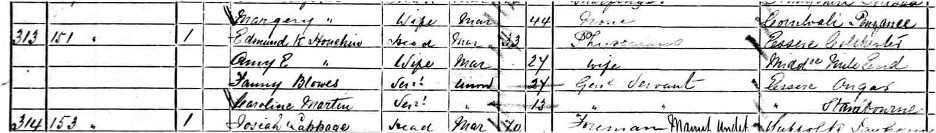 Margery " Wife Mar 44 None Cornwall Penzance
313 151 " 1 Edmund K Houchin Head Mar 33 Physician Essex Colchester
Amy E " Wife Mar 27 Wife Middx Mile End
Fanny Blowes Servt Unm 27 Genl Servant Essex Ongar
Caroline Martin Servt " 13 " " " Stambourne
314 153 " 1 Josiah Cabbage Head Mar Foreman